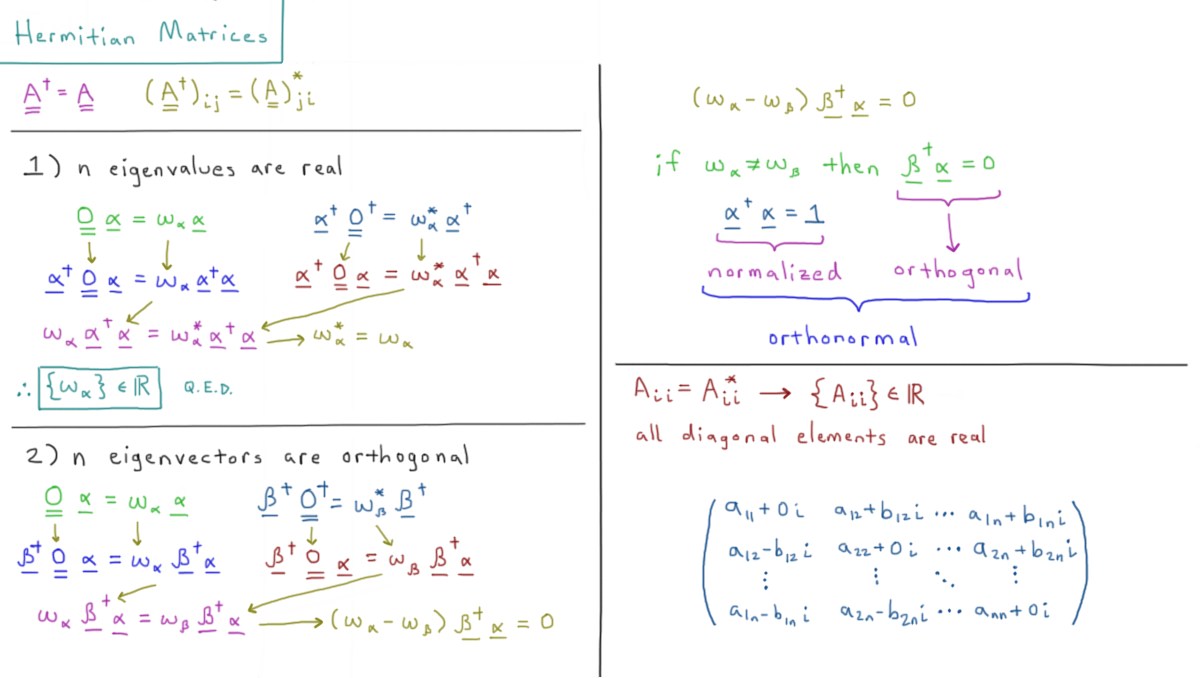 Hermitian Matrices
A† = A   (A†)ij = (A)*ji
1) n eigenvalues are real
O α = ωα α   α† O† = ω*α α†
α† O α = ωα α†α   α† O α = ω*α α† α
ωα α† α = ω*α α† α → ω*α = ωα
∴ {ωα} ∈ ℝ   Q.E.D.
2) n eigenvectors are orthogonal
O α = ωα α   β† O† = ω*β β†
β† O α = ωα β†α   β† O α = ωβ β†α
ωα β† α = ωβ β† α → (ωα - ωβ) β† α = 0
(ωα - ωβ) β† α = 0
if ωα ≠ ωβ then β† α = 0
α† α = 1
normalized   orthogonal
orthonormal
Aii = A*ii → {Aii} ∈ ℝ
all diagonal elements are real
a11 + 0i   a12 + b12i ... a1n + b1ni
a12 - b12i   a22 + 0i ... a2n + b2ni
⋮   ⋮   ⋱   ⋮
a1n - b1ni   a2n - b2ni ... ann + 0i